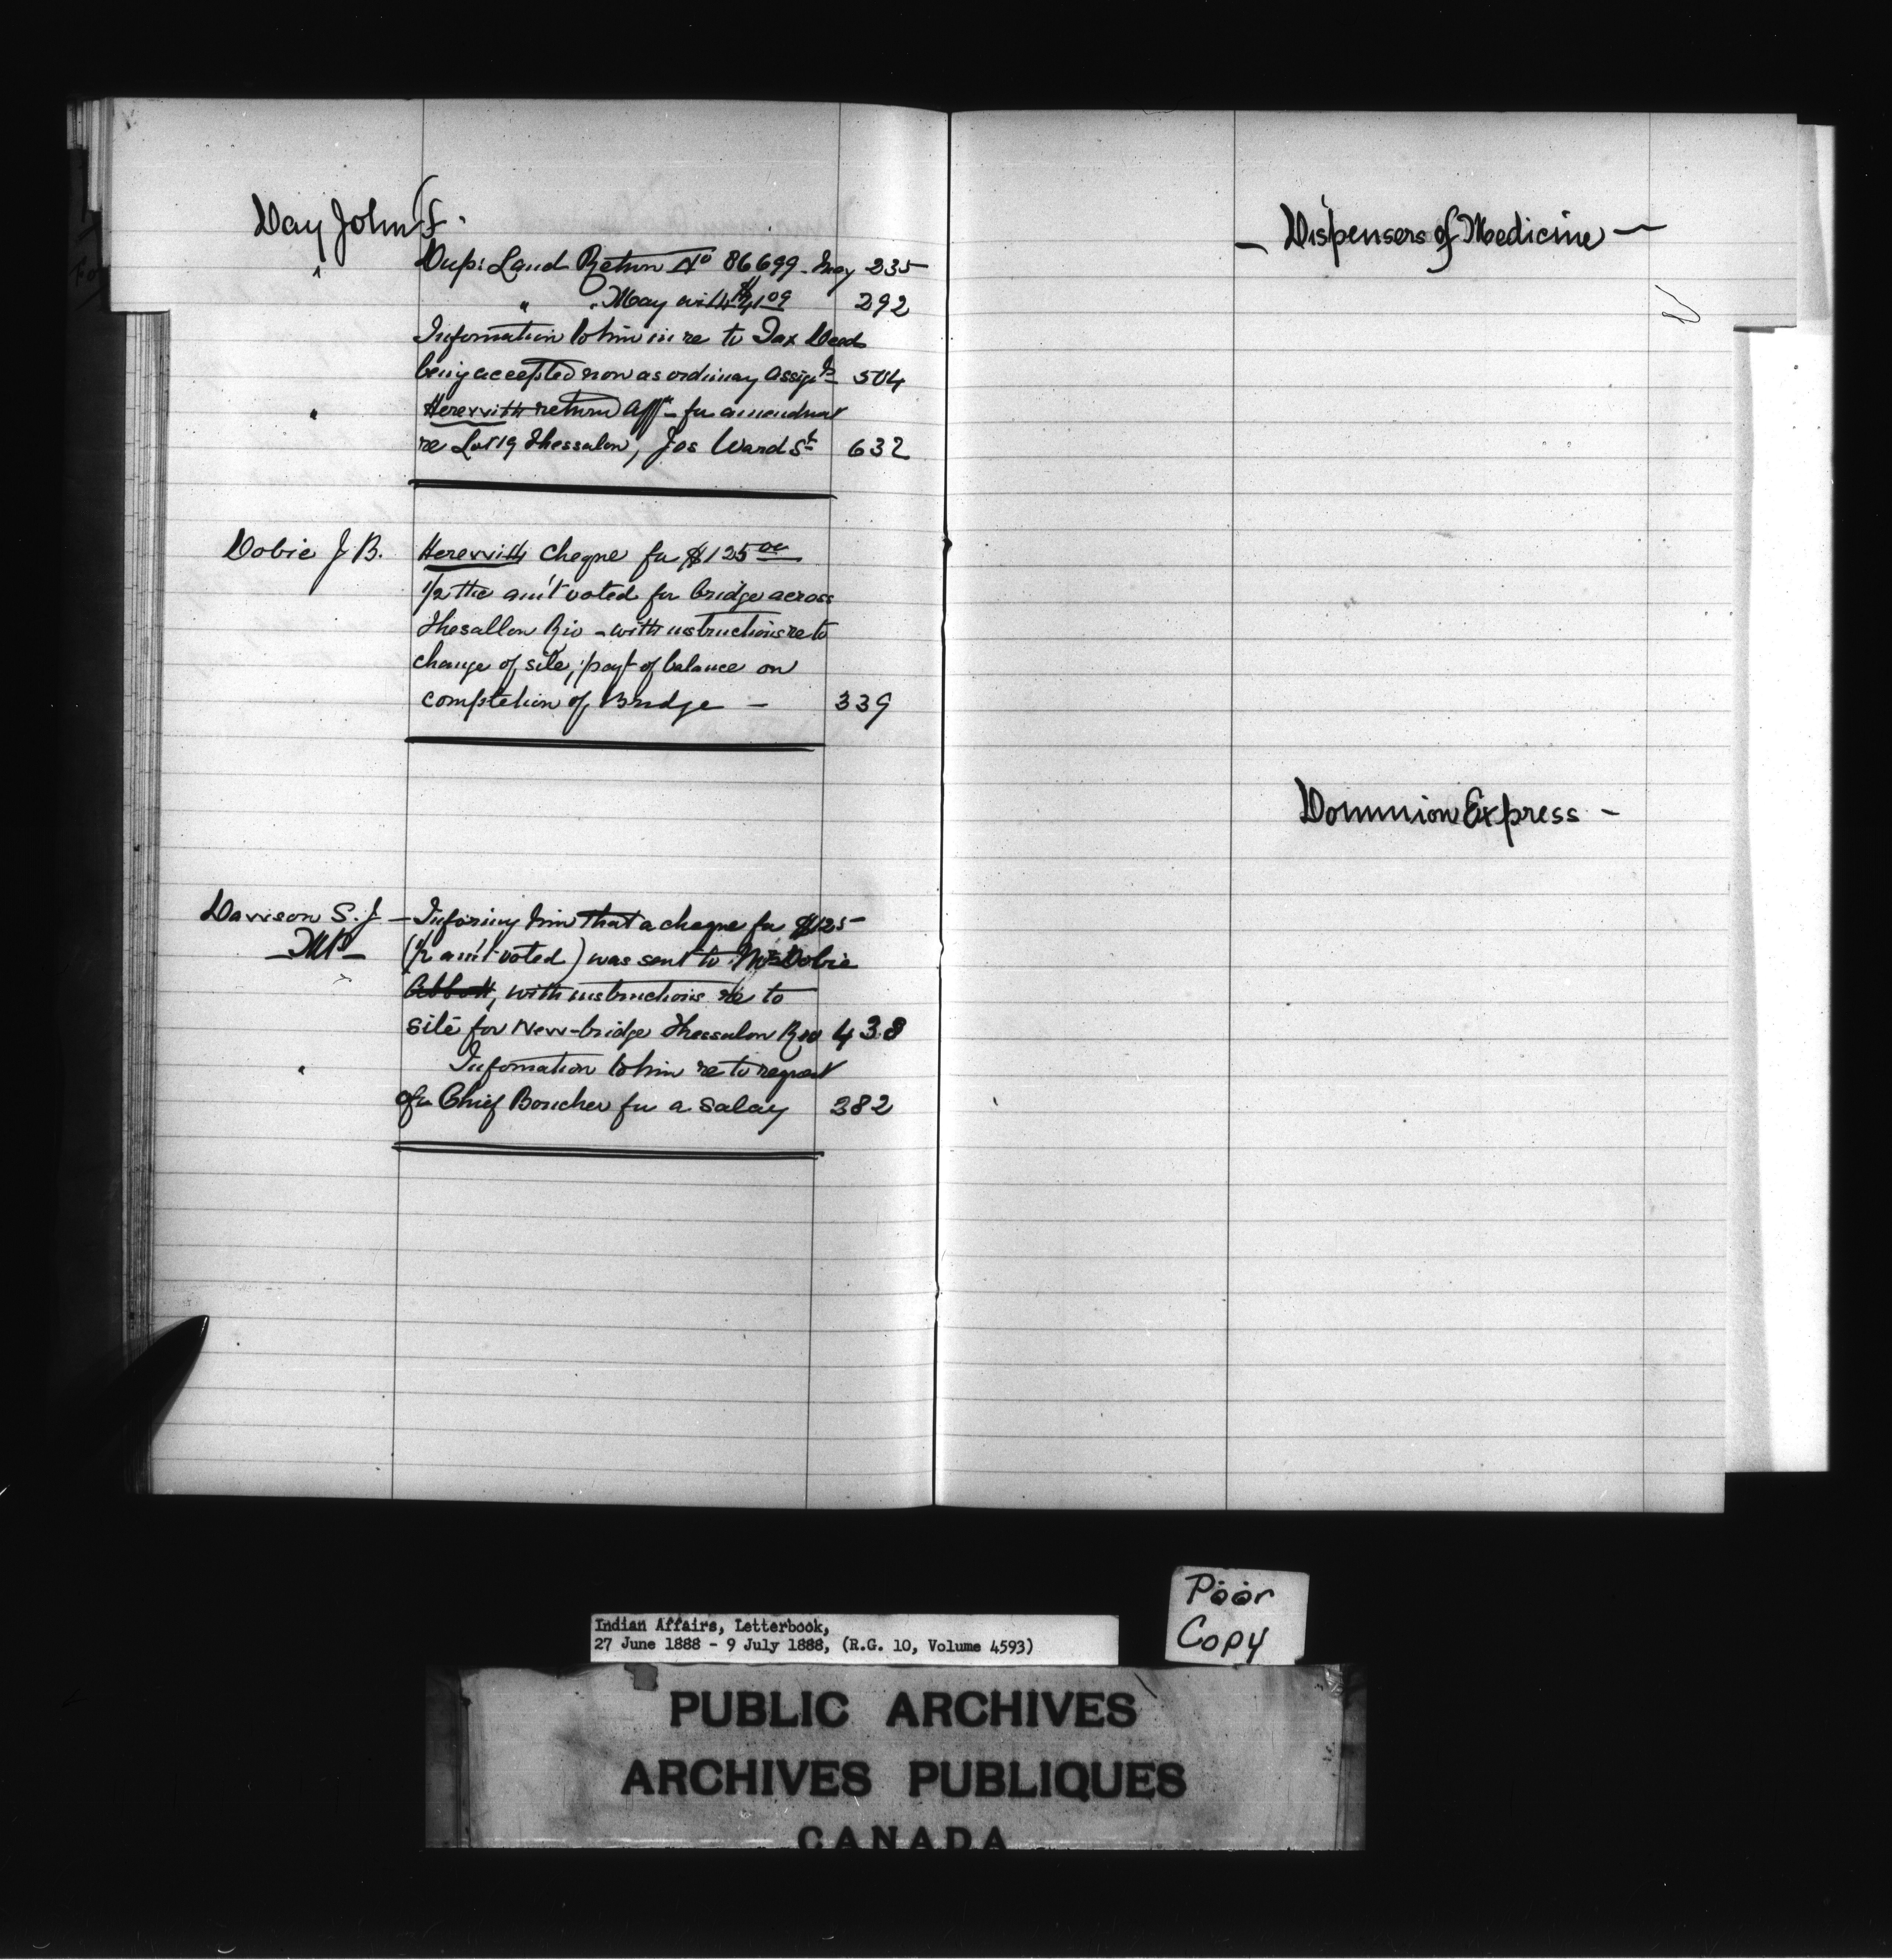 Day John F.
" Dup: Land Return No 86699 - May 235
" " May with $4.09 292
Information to him in re to Tax Deeds
being accepted now as ordinary Assigts 504
" Herewith return Afft - for amendment
re Lot 19 Thessalon, Jos Ward St 632
Dobie J B. Herewith Cheque for $125 00
1/2 the am't voted for bridge across
Thesallon Riv - with instructions re to
change of site, payt of balance on
completion of Bridge - 339
Davison S. J - Informing him that a cheque for $125
- MP - (1/2 am't voted) was sent to Mr Dobie
Abbott, with instructions re to
site for New-bridge Thessalon Riv 438
" Information to him re to request
of Chief Boucher for a Salary 382
- Dispensers of Medicine -
Dominion Express -
Poor
Copy
Indian Affairs, Letterbook,
27 June 1888 - 9 July 1888, (R.G. 10, Volume 4593)
PUBLIC ARCHIVES
ARCHIVES PUBLIQUES
CANADA